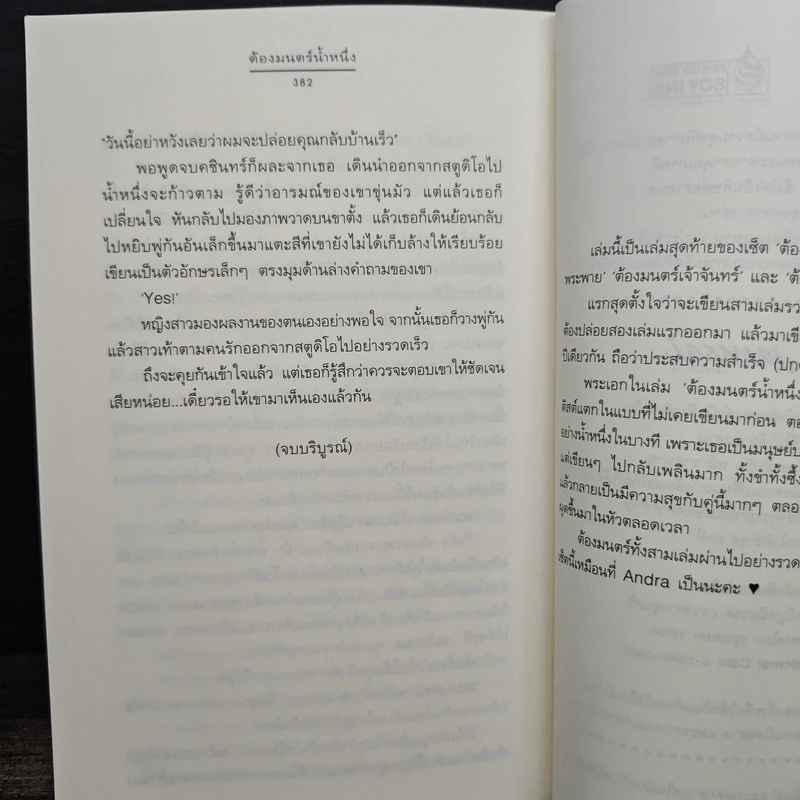 ต้องมนตร์น้ำหนึ่ง
382
"วันนี้อย่าหวังเลยว่าผมจะปล่อยคุณกลับบ้านเร็ว"
พอพูดจบคชินทร์ก็ผละจากเธอ เดินนำออกจากสตูดิโอไป
น้ำหนึ่งจะก้าวตาม รู้ดีว่าอารมณ์ของเขาขุ่นมัว แต่แล้วเธอก็
เปลี่ยนใจ หันกลับไปมองภาพวาดบนขาตั้ง แล้วเธอก็เดินย้อนกลับ
ไปหยิบพู่กันอันเล็กขึ้นมาแตะสีที่เขายังไม่ได้เก็บล้างให้เรียบร้อย
เขียนเป็นตัวอักษรเล็กๆ ตรงมุมด้านล่างคำถามของเขา
'Yes!'
หญิงสาวมองผลงานของตนเองอย่างพอใจ จากนั้นเธอก็วางพู่กัน
แล้วสาวเท้าตามคนรักออกจากสตูดิโอไปอย่างรวดเร็ว
ถึงจะคุยกันเข้าใจแล้ว แต่เธอก็รู้สึกว่าควรจะตอบเขาให้ชัดเจน
เสียหน่อย...เดี๋ยวรอให้เขามาเห็นเองแล้วกัน
(จบบริบูรณ์)
เล่มนี้เป็นเล่มสุดท้ายของเซ็ต 'ต้อ
พระพาย' 'ต้องมนตร์เจ้าจันทร์' และ 'ต้
แรกสุดตั้งใจว่าจะเขียนสามเล่มรว
ต้องปล่อยสองเล่มแรกออกมา แล้วมาเขี
ปีเดียวกัน ถือว่าประสบความสำเร็จ (ปก
พระเอกในเล่ม 'ต้องมนตร์น้ำหนึ่ง
ติสต์แตกในแบบที่ไม่เคยเขียนมาก่อน ตอ
อย่างน้ำหนึ่งในบางที เพราะเธอเป็นมนุษย์บ
แต่เขียนๆ ไปกลับเพลินมาก ทั้งขำทั้งซึ้ง
แล้วกลายเป็นมีความสุขกับคู่นี้มากๆ ตลอ
ผุดขึ้นมาในหัวตลอดเวลา
ต้องมนตร์ทั้งสามเล่มผ่านไปอย่างรวด
เซ็ตนี้เหมือนที่ Andra เป็นนะคะ ♥